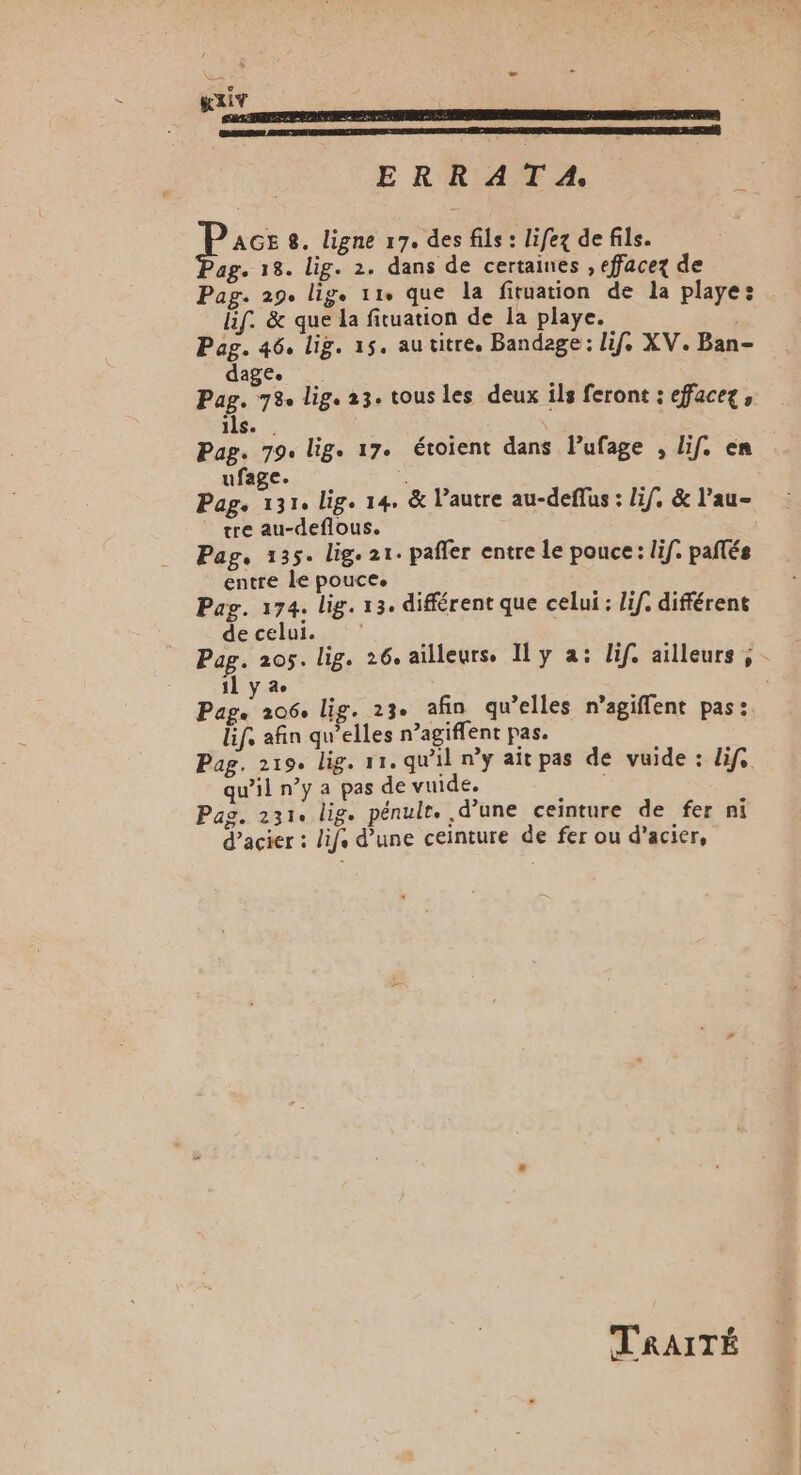 xxiv
ERRATA.
PAGE 8. ligne 17. des fils : lifez de fils.
Pag. 18. lig. 2. dans de certaines , effacez de
Pag. 29. lig. 11. que la fituation de la playe :
lif. & que la fituation de la playe.
Pag. 46. lig. 15. au titre. Bandage : lif. XV. Ban-
dage.
Pag. 78. lig. 23. tous les deux ils feront : effacez ,
ils.
Pag. 79. lig. 17. étoient dans l'ufage , lif. en
ufage.
Pag. 131. lig. 14. & l'autre au-deffus : lif. & l'au-
tre au-deffous.
Pag. 135. lig. 21. paffer entre le pouce : lif. paffés
entre le pouce.
Pag. 174. lig. 13. différent que celui : lif. différent
de celui.
Pag. 205. lig. 26. ailleurs. Il y a : lif. ailleurs ;
il y a.
Pag. 206. lig. 23. afin qu'elles n'agiffent pas :
lif. afin qu'elles n'agiffent pas.
Pag. 219. lig. 11. qu'il n'y ait pas de vuide : lif.
qu'il n'y a pas de vuide.
Pag. 231. lig. pénult. d'une ceinture de fer ni
d'acier : lif. d'une ceinture de fer ou d'acier,
TRAITÉ